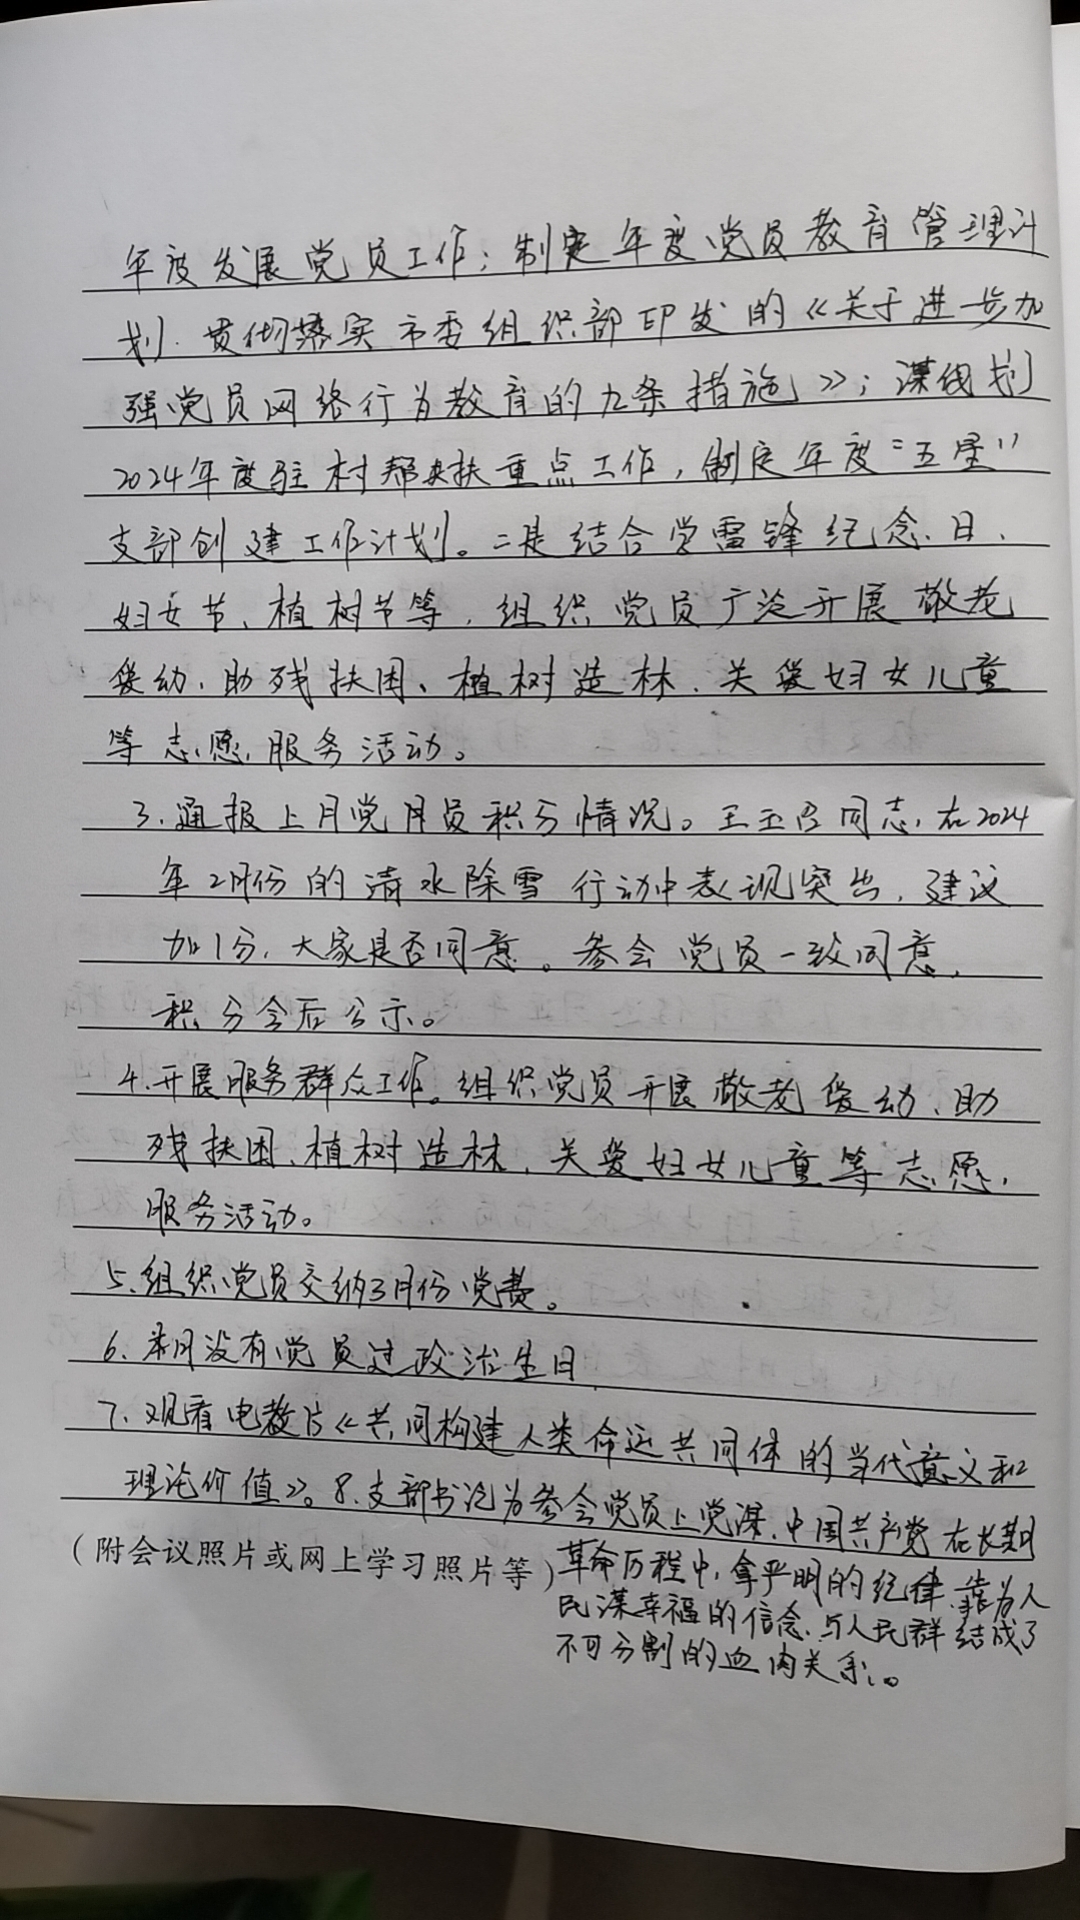 年度发展党员工作；制定年度党员教育管理计
划.贯彻落实市委组织部印发的《关于进一步加
强党员网络行为教育的九条措施》；谋划
2024年度驻村帮扶重点工作，制定年度“五星”
支部创建工作计划。二是结合学雷锋纪念日、
妇女节、植树节等，组织党员广泛开展敬老
爱幼、助残扶困、植树造林、关爱妇女儿童
等志愿服务活动。
3.通报上月党月员积分情况。王玉同志，在2024
年2月份的清水除雪行动中表现突出，建议
加1分，大家是否同意。参会党员一致同意，
积分会后公示。
4.开展服务群众工作。组织党员开展敬老爱幼、助
残扶困、植树造林、关爱妇女儿童等志愿，
服务活动。
5.组织党员交纳3月份党费。
6、本月没有党员过政治生日
7、观看电教片《共同构建人类命运共同体的当代意义和
理论价值》。8.支部书记为参会党员上党课.中国共产党在长期
(附会议照片或网上学习照片等)
革命历程中，拿严明的纪律.靠为人
民谋幸福的信念.与人民群结成了
不可分割的血肉关系。